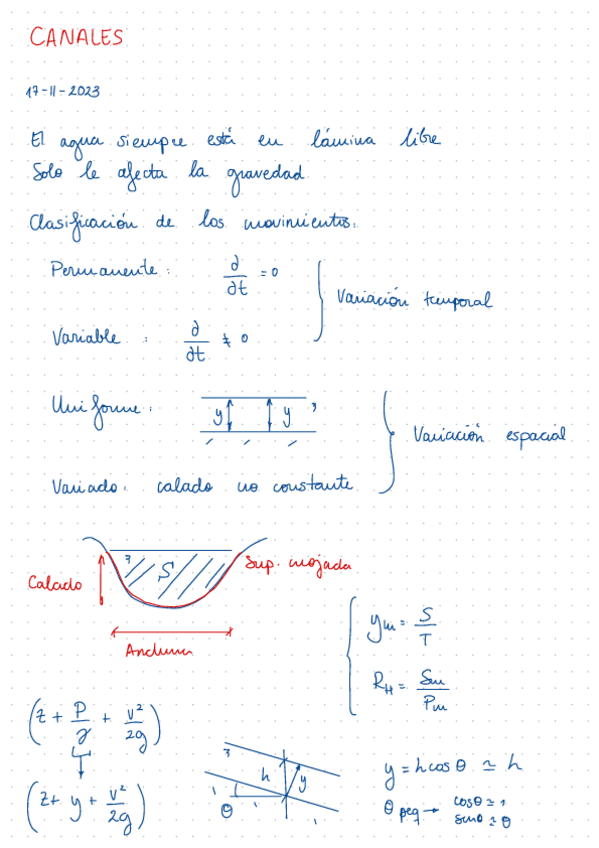 CANALES
17-11-2023
El agua siempre está en lámina libre
Solo le afecta la gravedad
Clasificación de los movimientos:
Permanente: ∂/∂t = 0
Variable: ∂/∂t ≠ 0
Variación temporal
Uniforme: y y
Variado: calado no constante
Variación espacial
S
Sup. mojada
Calado
Anchura
y_m = S/T
R_H = S_m/P_m
(z + P/γ + v²/2g)
(z + y + v²/2g)
h y
θ
y = h cos θ ≃ h
θ peq → cosθ ≃ 1
senθ ≃ θ